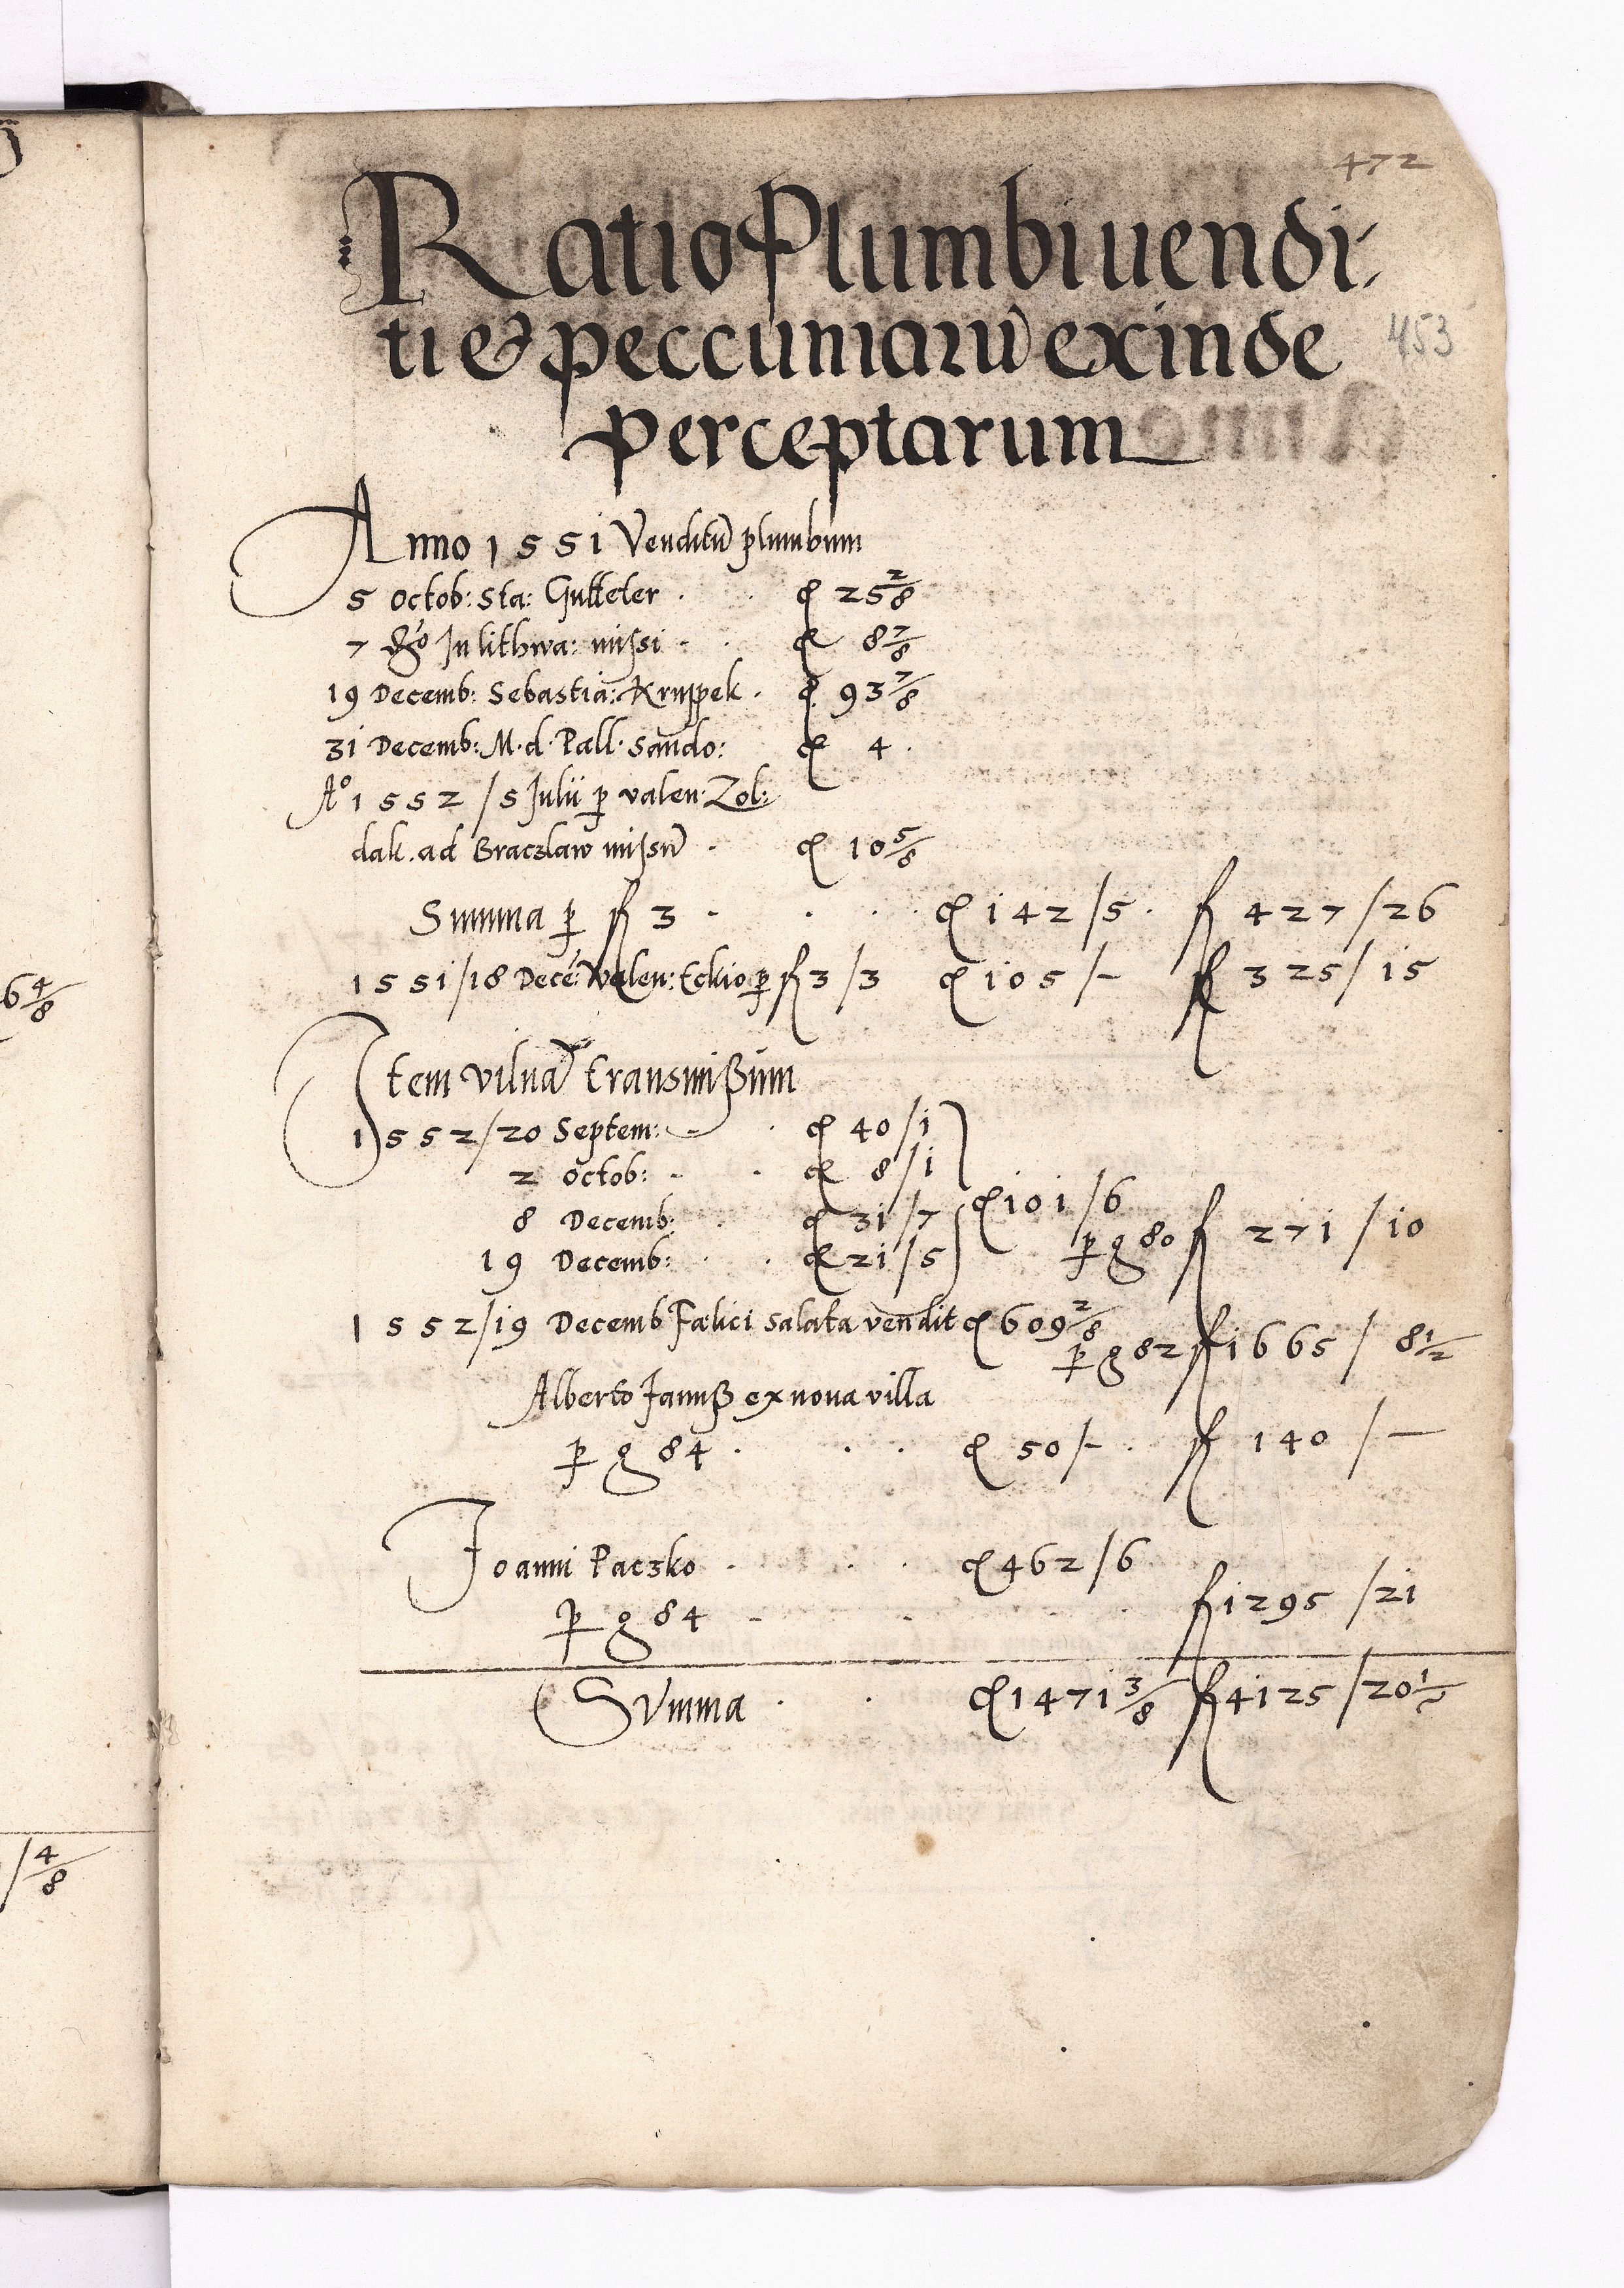 472
Ratio Plumbi uendi-
ti et peccuniarū exinde
453
perceptarum
Anno 1551 Venditū plumbum
5 Octob: Sta: Gutteter · · ꞇ 25 2/8
7 dto In lithwa: missi · · ꞇ 8 7/8
19 Decemb: Sebastiā: Kruppek · ꞇ 93 7/8
31 Decemb: M. d. Pall. Sando: ꞇ 4 ·
Aº 1552 /5 Julii p valen: Zol:
dak. ad Braczlaw missū · ꞇ 10 5/8
Summa p fl 3 · · · · ꞇ 142 /5 · fl 427 /26
1551/18 Decē: Walen: Eckio p fl 3 /3 ꞇ 105 /- fl 325 / 15
Item vilnā transmißum
1552/20 Septem: · ꞇ 40 /1
2 Octob: · · ꞇ 8 /1
8 Decemb: · ꞇ 31 /7 ꞇ 101 /6
19 Decemb: · · ꞇ 21 /5 p g 80 fl 271 /10
1552/19 Decemb Fælici Salata vendit ꞇ 609 2/8
p g 82 fl 1665 / 8 1/2
Alberto Januß ex nova villa
p g 84 · · · ꞇ 50 /- · fl 140 /-
Joanni Paczko · · · ꞇ 462 /6
p g 84 - · · fl 1295 /21
Summa · · ꞇ 1471 3/8 fl 4125 /20 1/2
6 4/8
/ 4/8